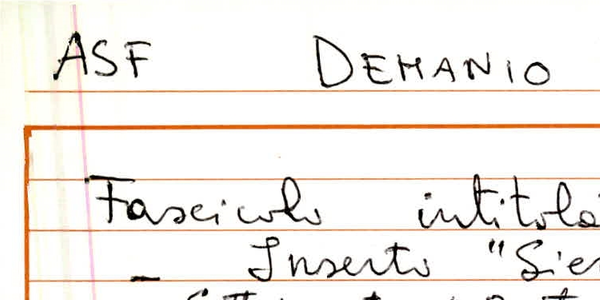 ASF DEMANIO
Fascicolo intitola
- Inserto "Sie